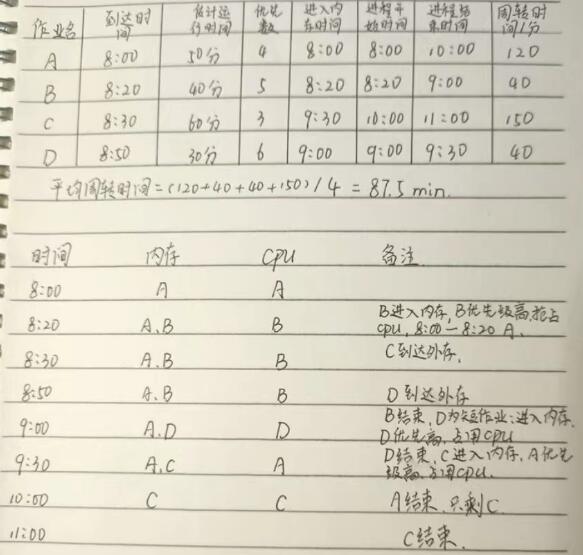 作业名 到达时间 估计运行时间 优先数 进入内存时间 进程开始时间 进程结束时间 周转时间/分
A 8:00 50分 4 8:00 8:00 10:00 120
B 8:20 40分 5 8:20 8:20 9:00 40
C 8:30 60分 3 9:30 10:00 11:00 150
D 8:50 30分 6 9:00 9:00 9:30 40
平均周转时间=(120+40+40+150)/4=87.5min.
时间 内存 CPU 备注
8:00 A A
8:20 A、B B B进入内存,B优先级高,抢占
cpu,8:00-8:20 A.
8:30 A、B B C到达外存.
8:50 A、B B D到达外存
9:00 A、D D B结束,D为短作业∴进入内存.
D优先高,占用CPU
9:30 A、C A D结束,C进入内存,A优先
级高,占用CPU.
10:00 C C A结束,只剩C
11:00 C结束.